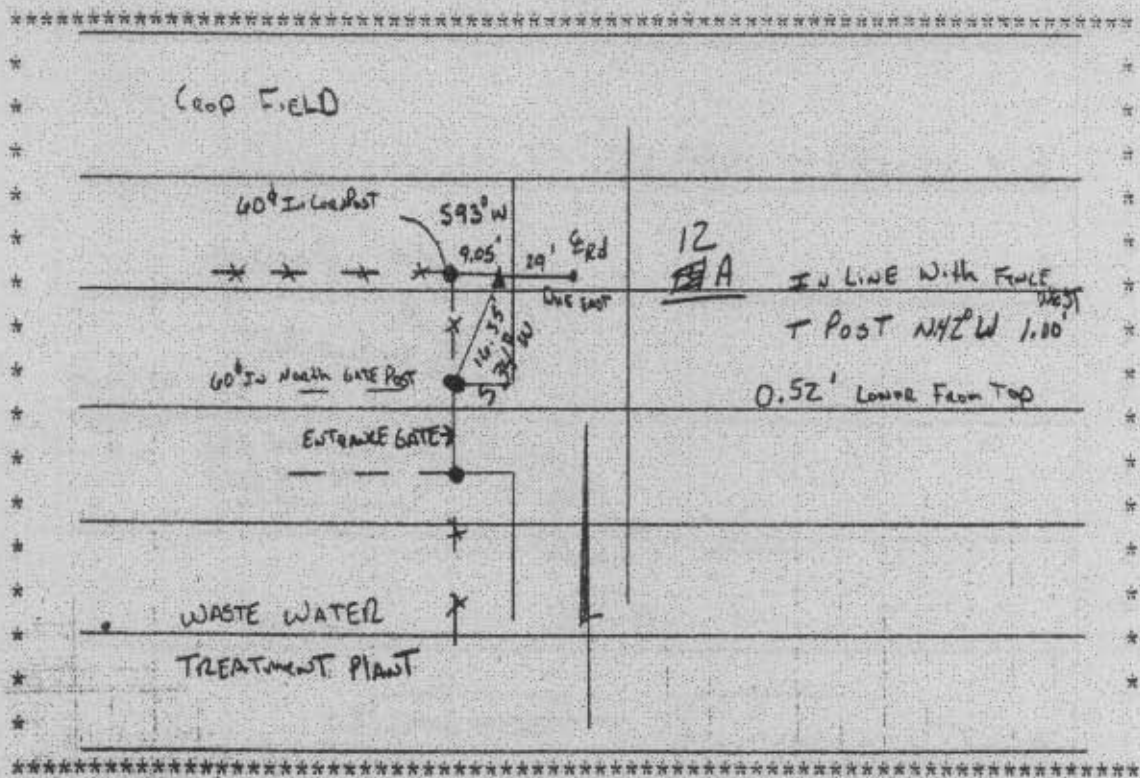 Crop FIELD
60d In Cor Post
S93°W
9.05'
29'
℄ Rd
DUE EAST
12
A
IN LINE With FENCE
WEST
T POST N42°W 1.00'
0.52' LOWER From TOP
16.35'
S 31° W
60d IN North GATE POST
ENTRANCE GATE
WASTE WATER
TREATMENT PLANT